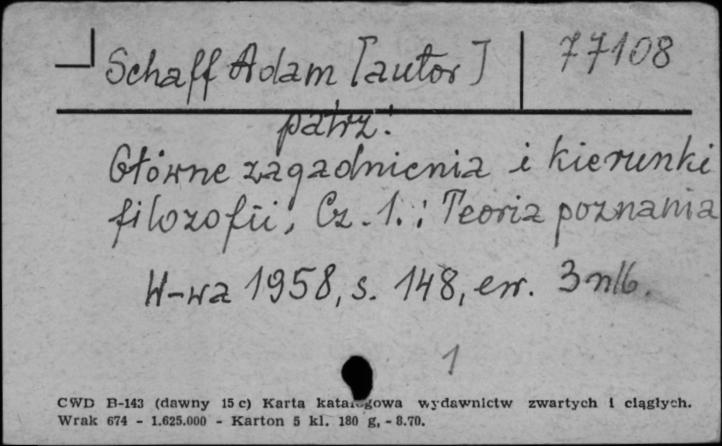 Schaff Adam [autor] 77108
patrz:
Główne zagadnienia i kierunki
filozofii, Cz. 1.: Teoria poznania
W-wa 1958, s. 148, err. 3 nlb.
1
CWD B-143 (dawny 15 c) Karta katalogowa wydawnictw zwartych i ciągłych.
Wrak 674 - 1.625.000 - Karton 5 kl. 180 g, - 8.70.